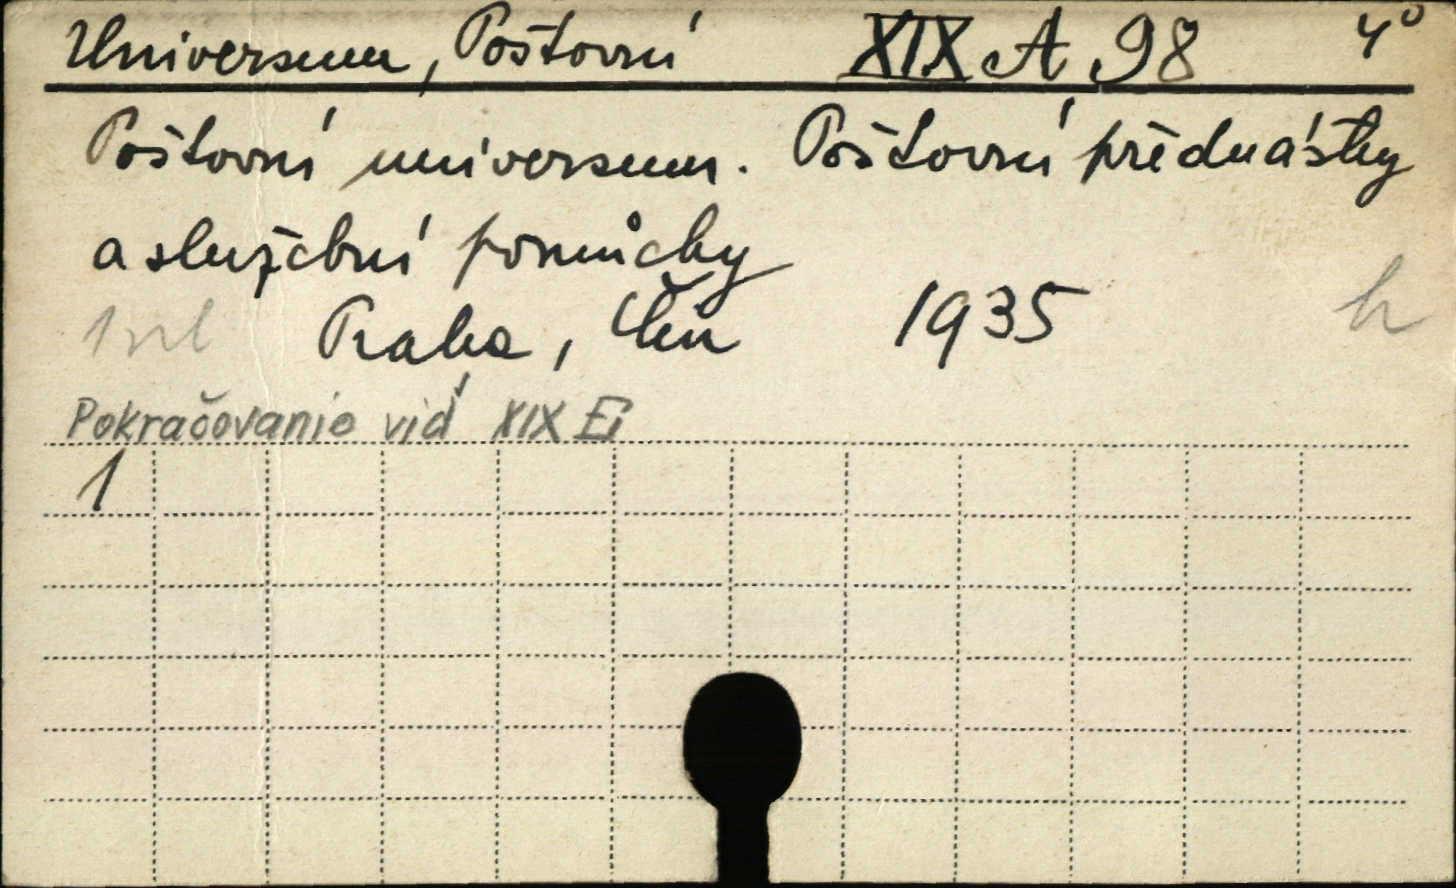 Universum, Poštovní XIX A 98 4°
Poštovní universum. Poštovní přednášky
a služební pomůcky
Praha, Čin 1935 h
Pokračovanie viď XIX Ei
1